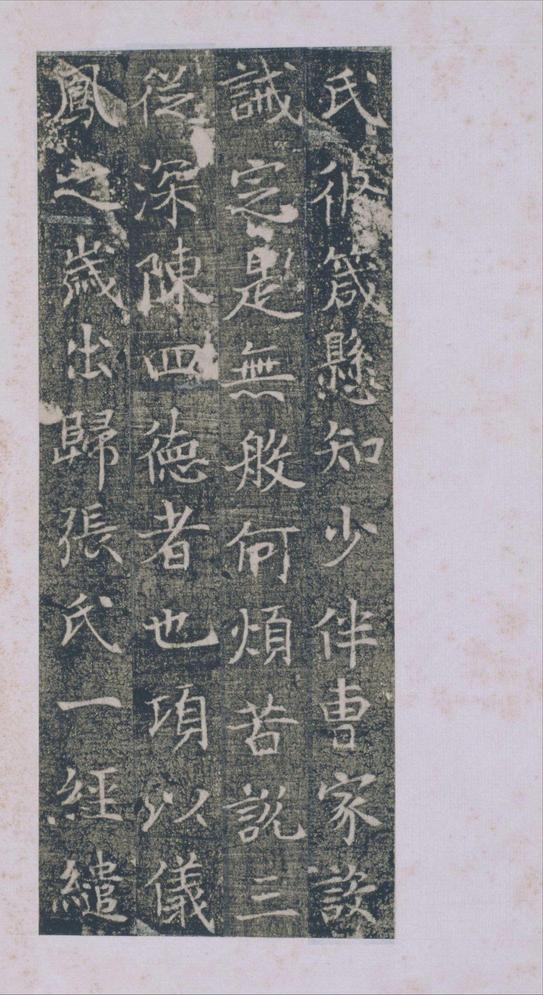 氏攸箴懸知少伴曹家設
誡定是無般何煩苦說三
從深陳四德者也項以儀
鳳之歲出歸張氏一經繾